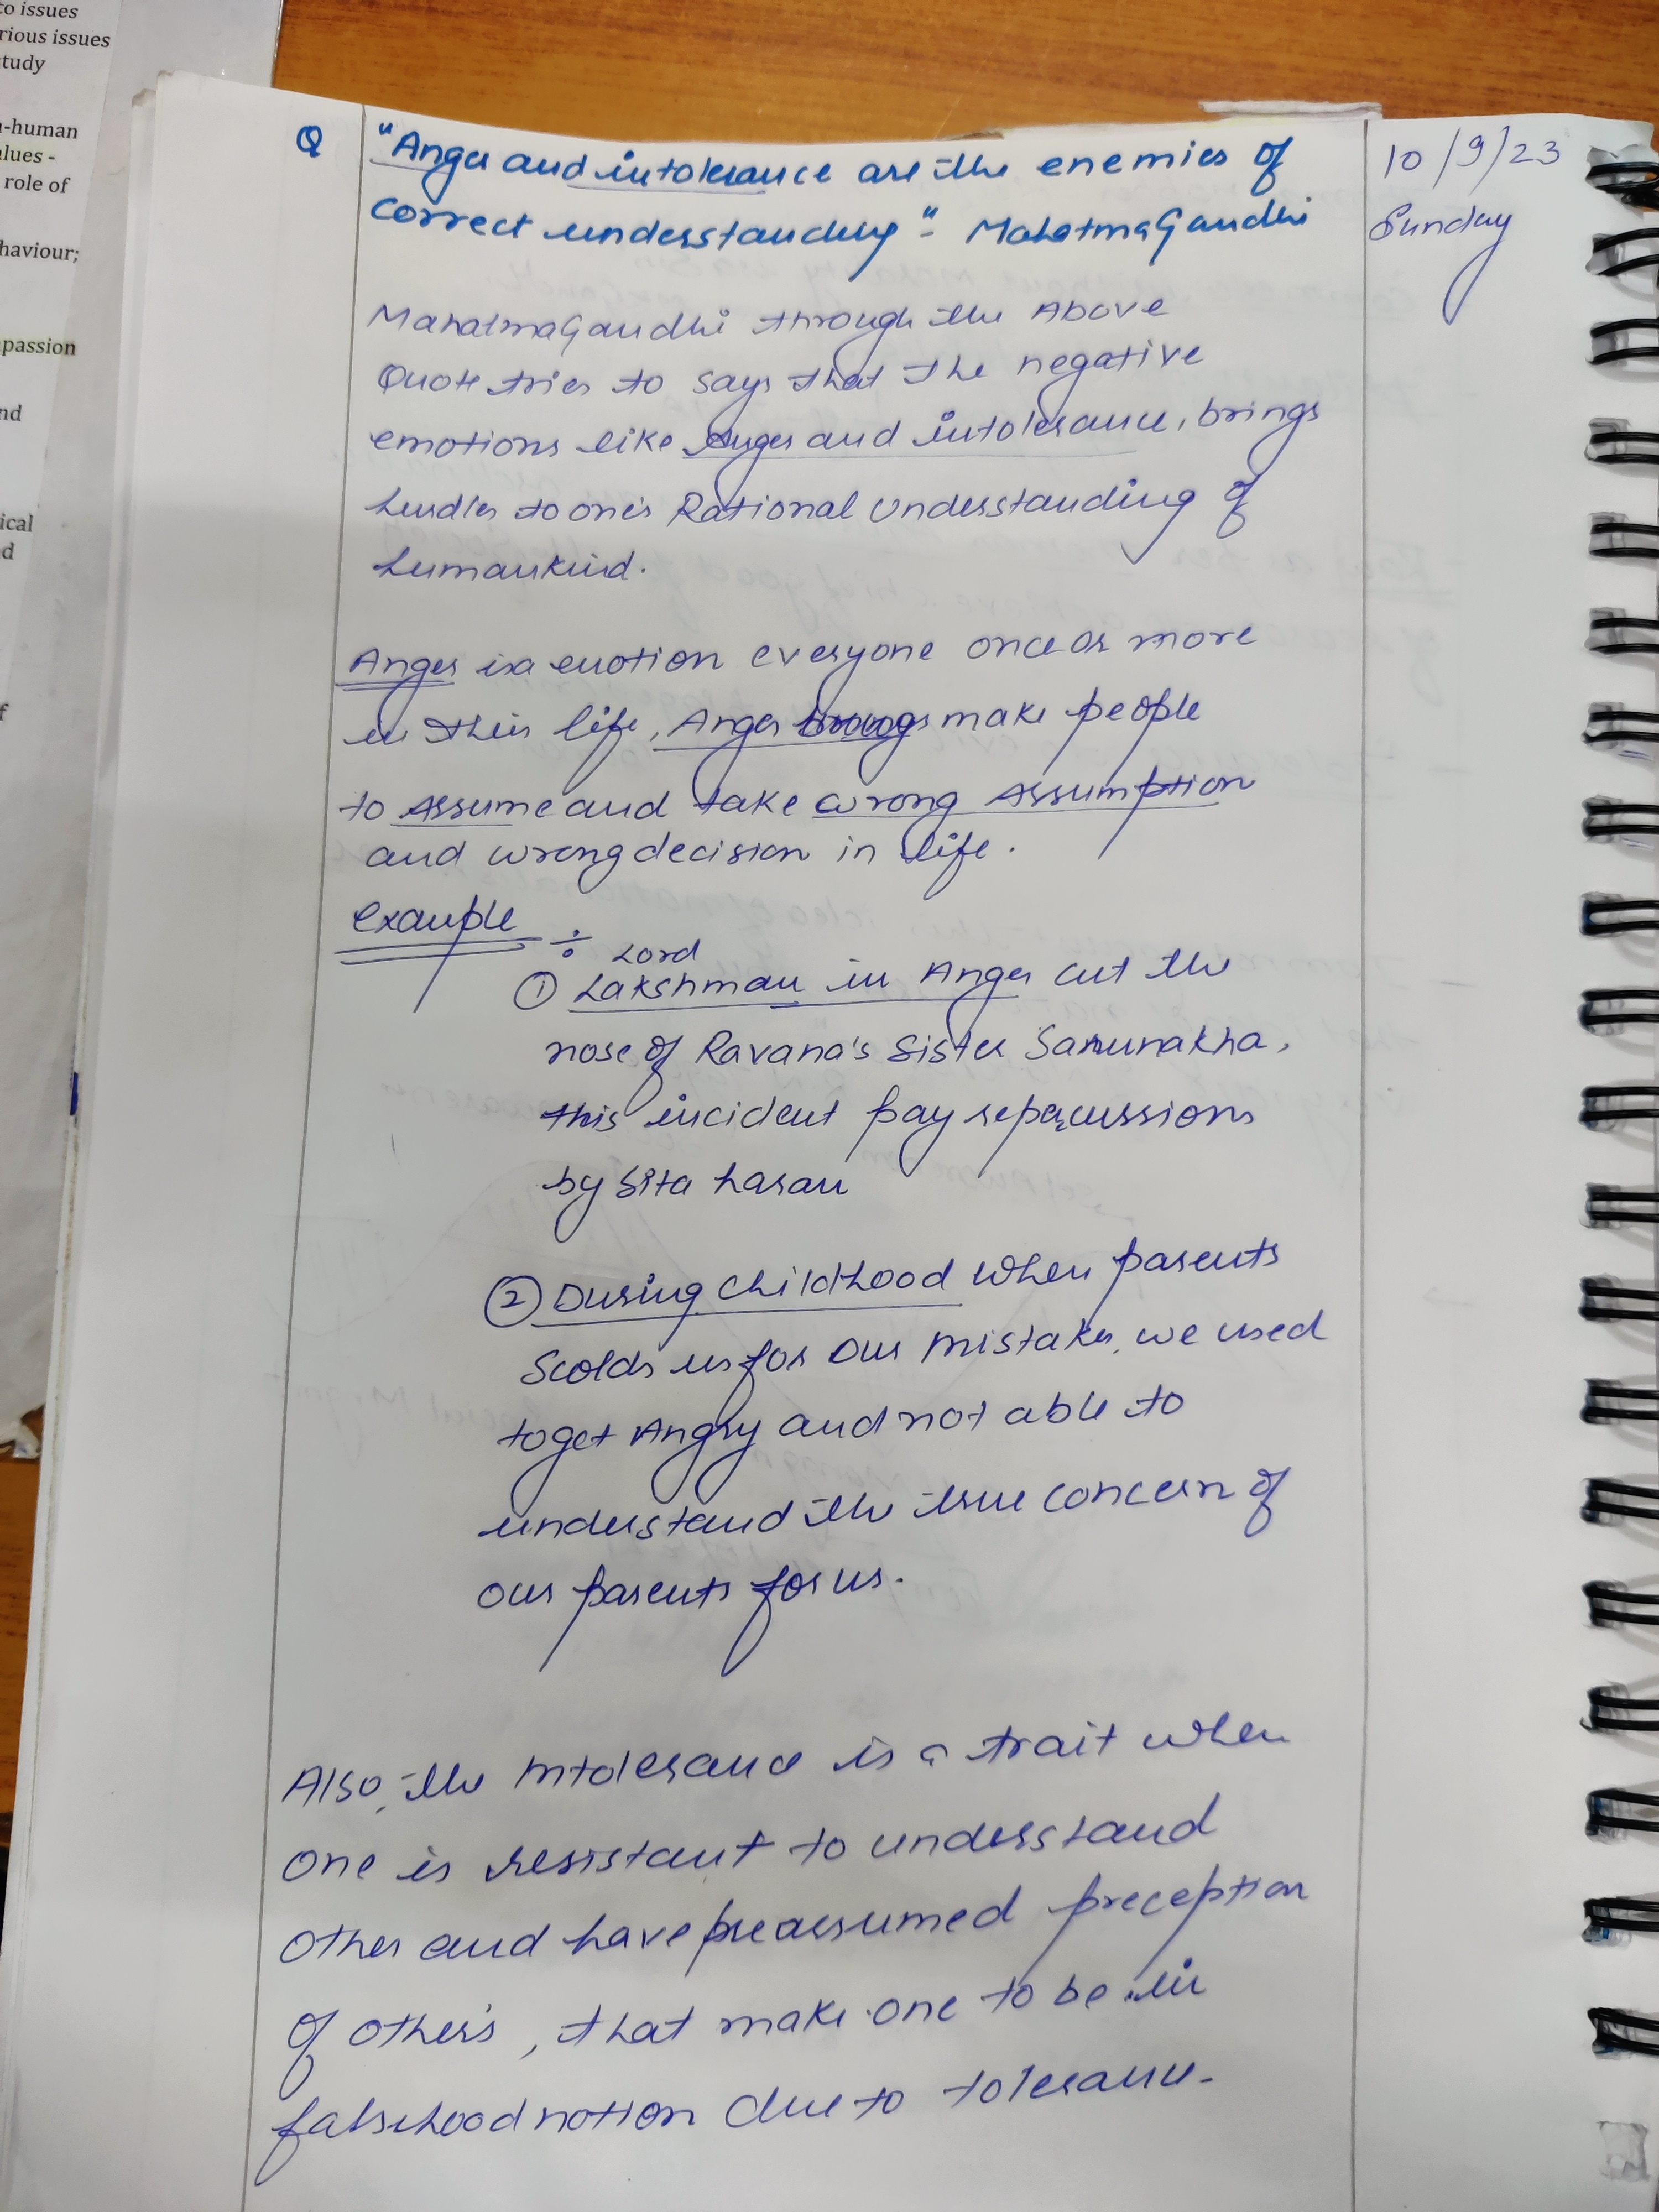 to issues
rious issues
study
-human
alues -
role of
haviour;
passion
nd
ical
d
f
10/9/23
Sunday
Q "Anger and intolerance are the enemies of
correct understanding" - Mahatma Gandhi
Mahatma Gandhi through the Above
Quote tries to says that the negative
emotions like Anger and intolerance, brings
hurdles to one's Rational Understanding of
humankind.
Anger is a emotion everyone once or more
in their life, Anger brings make people
to Assume and take wrong Assumption
and wrong decision in life.
Example ÷
Lord
① Lakshman in Anger cut the
nose of Ravana's Sister
this incident pay repercussions
by Sita haran
② During childhood when parents
Scolds us for our mistakes, we used
to get Angry and not able to
understand the true concern of
our parents for us.
Also, the Intolerance is a trait when
one is resistant to understand
other and have preassumed preception
of other's, that make one to be in
falsehood notion due to tolerance.